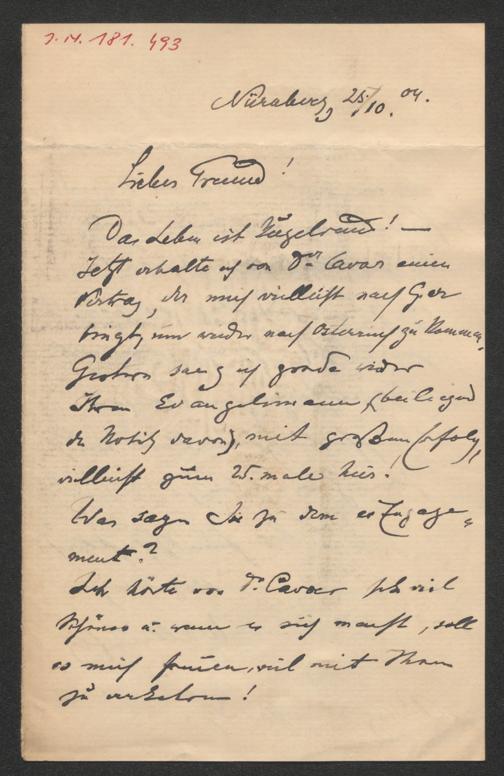 J.N. 181.493
Nürnberg, 25/10. 04.
Liebes Freund!
Das Leben ist Kugelrund! —
Jetzt erhalte ich von Dr. Cavar einen
Vertrag, der mich vielleicht nach Graz
bringt, um wieder nach Österreich zu kommen.
Gestern sang ich gerade wieder
Ihren Evangelimann (beiliegend
die Notitz davon), mit großem Erfolg,
vielleicht zum 25. male hier!
Was sagen Sie zu dem Engage-
ment?
Ich hörte von Dr. Cavar sehr viel
Schönes u. wenn es sich macht, soll
es mich freuen, viel mit Ihnen
zu verkehren!